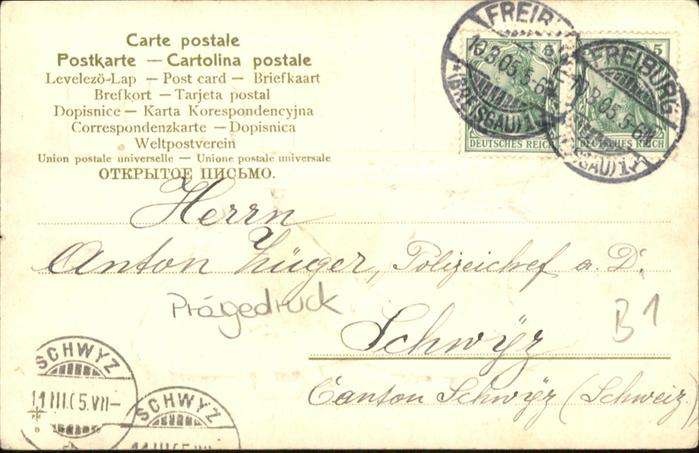 Carte postale
Postkarte — Cartolina postale
Levelező-Lap — Post card — Briefkaart
Brefkort — Tarjeta postal
Dopisnice — Karta Korespondencyjna
Correspondenzkarte — Dopisnica
Weltpostverein
Union postale universelle — Unione postale universale
ОТКРЫТОЕ ПИСЬМО.
FREIBURG
10.3.05.5-6N
(BREISGAU) 1
5
DEUTSCHES REICH
FREIBURG
10.3.05.5-6N
(BREISGAU) 1
5
DEUTSCHES REICH
Herrn
Anton Züger, Polizeichef a. D.
Prägedruck
B1
Schwyz
Canton Schwyz (Schweiz)
SCHWYZ
11 III 05.VII-
SCHWYZ
11 III 05.VII